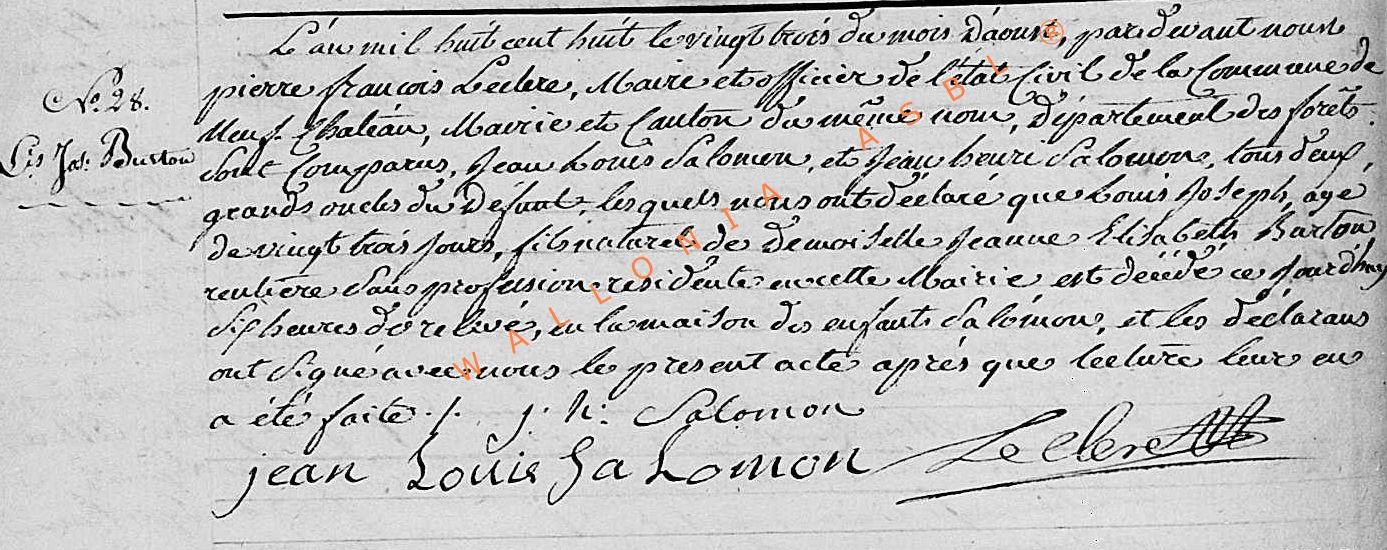 L'an mil huit cent huit le vingt trois du mois D'aoust, par devant nous
pierre françois Leclere, Maire et officier de l'état Civil de la Commune de
Neuf-Chateau, Mairie et Canton du même nom, Département des forêts.
N.º 28.
Ls. Jos. Burton
Sont Comparus, Jean Louis Salomon, et Jean henri Salomon, tous deux,
grands oncles du Défunt, lesquels nous ont déclaré que Louis Joseph, agé
de vingt trois jours, fils naturel de Demoiselle Jeanne Elisabeth Burton
rentière sans profession résidente en cette Mairie est décédé ce jourd'huy
Six heures de relevé, en la maison des enfants Salomon, et les déclarans
ont signé avec nous le présent acte après que lecture leur en
a été faite ./. j. h: Salomon
jean Louis Salomon Leclere
WALLONIA ASBL ®